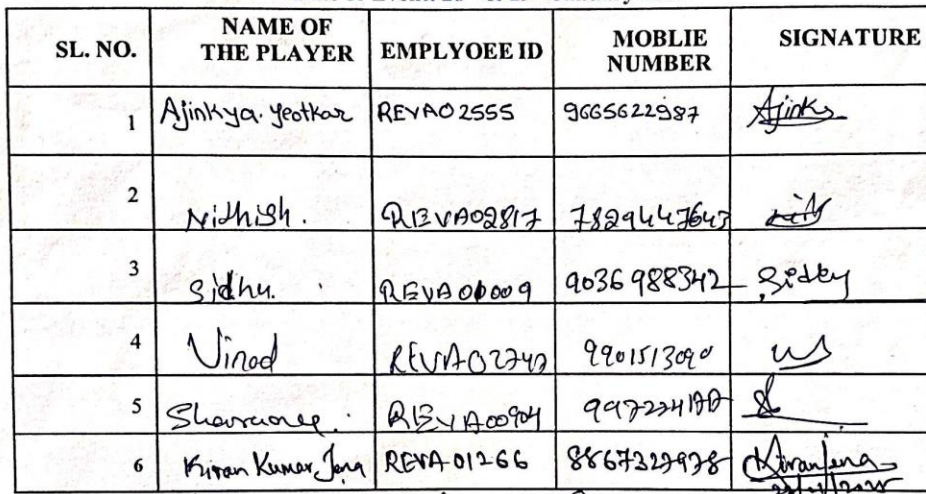 SL. NO. NAME OF THE PLAYER EMPLYOEE ID MOBLIE NUMBER SIGNATURE
1 Ajinkya. Yeotkar REVA02555 9665622987 Ajinky
2 Nithish. REVA02817 7829447643
3 Sidhu. REVA00009 9036988342 Sidhu
4 Vinod REVA02747 9901513090
5 REVA00904
6 Kiran Kumar Jena REVA01266 8867327978 Kiran Jena